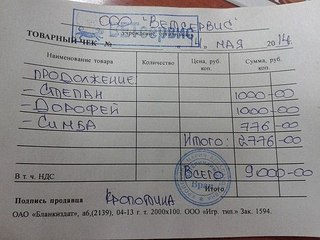 ООО "Ветсервис"
ТОВАРНЫЙ ЧЕК № МАЯ 2014г.
Наименование товара Количество Цена, руб. коп. Сумма, руб. коп.
ПРОДОЛЖЕНИЕ
– СТЕПАН 1000-00
– ДОРОФЕЙ 1000-00
– СИМБА 776-00
Итого: 2776-00
В т. ч. НДС ВСЕГО 9000-00
Врач
Подпись продавца КРОПОТИНА
ОАО «Бланкиздат», а6,(2139), 04-13 г. т. 2000х100. ООО "Игр. тип." Зак. 1594.